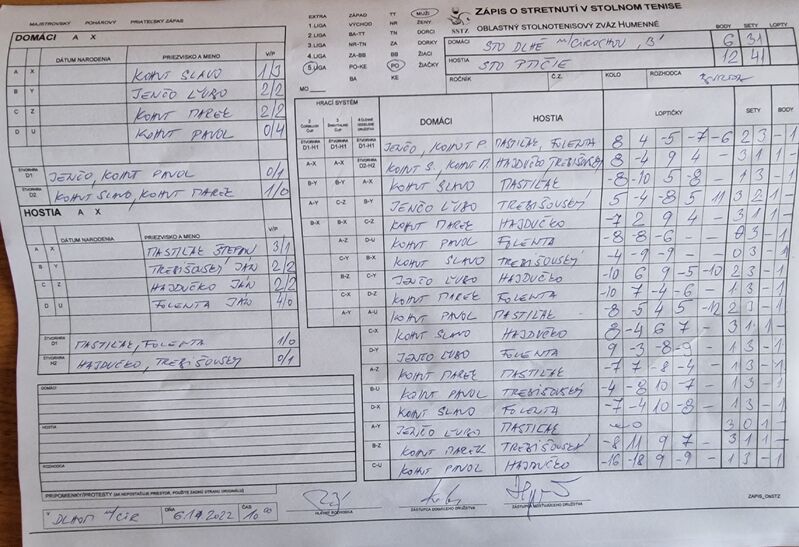 MAJSTROVSKÝ POHÁROVÝ PRIATEĽSKÝ ZÁPAS
DOMÁCI A X
DÁTUM NARODENIA PRIEZVISKO A MENO V/P
A X KOHUT SLAVO 1/3
B Y JENČO ĽUBO 2/2
C Z KOHUT MAREK 2/2
D U KOHUT PAVOL 0/4
ŠTVORHRA D1 JENČO, KOHUT PAVOL 0/1
ŠTVORHRA D2 KOHUT SLAVO, KOHUT MAREK 1/0
HOSTIA A X
DÁTUM NARODENIA PRIEZVISKO A MENO V/P
A X MASTIĽAK ŠTEFAN 3/1
B Y TREBIŠOVSKÝ JÁN 2/2
C Z HAJDUČKO JÁN 2/2
D U FOLENTA JÁN 4/0
ŠTVORHRA D1 MASTIĽAK, FOLENTA 1/0
ŠTVORHRA H2 HAJDUČKO, TREBIŠOVSKÝ 0/1
DOMÁCI
HOSTIA
ROZHODCA
PRIPOMIENKY/PROTESTY (AK NEPOSTAČUJE PRIESTOR, POUŽITE ZADNÚ STRANU ORIGINÁLU)
V DLHOM N/CIR DŇA ČAS 10 00
EXTRA ZÁPAD TT MUŽI
1 LIGA VÝCHOD NR ŽENY
2 LIGA BA-TT TN DORCI
3 LIGA NR-TN ZA DORKY
4 LIGA ZA-BB BB ŽIACI
5 LIGA PO-KE PO ŽIAČKY
MO BA KE
SSTZ
ZÁPIS O STRETNUTÍ V STOLNOM TENISE
OBLASTNÝ STOLNOTENISOVÝ ZVÄZ HUMENNÉ
BODY SETY LOPTY
DOMÁCI STO DLHÉ N/CIROCHOU "B" 6 31
HOSTIA STO PTIČIE 12 41
ROČNÍK Č.Z. KOLO ROZHODCA
HRACÍ SYSTÉM DOMÁCI HOSTIA LOPTIČKY SETY BODY
ŠTVORHRA D1-H1 ŠTVORHRA D1-H1 ŠTVORHRA D1-H1 JENČO, KOHUT P. MASTIĽAK, FOLENTA 8 4 -5 -7 -6 2 3 - 1
A-X A-X ŠTVORHRA D2-H2 KOHUT S. KOHUT M. HAJDUČKO TREBIŠOVSKÝ 8 -4 9 4 - 3 1 1 -
B-Y B-Y A-X KOHUT SLAVO MASTIĽAK -8 -10 5 -8 - 1 3 - 1
A-Y C-Z B-Y JENČO ĽUBO TREBIŠOVSKÝ 5 -4 -8 5 11 3 2 1 -
B-X B-X C-Z KOHUT MAREK HAJDUČKO -7 2 9 4 - 3 1 1 -
A-Z D-U KOHUT PAVOL FOLENTA -8 -8 -6 - - 0 3 - 1
C-Y B-X KOHUT SLAVO TREBIŠOVSKÝ -4 -9 -9 - - 0 3 - 1
B-Z C-Y JENČO ĽUBO HAJDUČKO -10 6 9 -5 -10 2 3 - 1
C-X D-Z KOHUT MAREK FOLENTA -10 7 -4 -6 - 1 3 - 1
A-Y A-U KOHUT PAVOL MASTIĽAK -8 -5 4 5 -12 2 3 - 1
C-X KOHUT SLAVO HAJDUČKO 8 -4 6 7 - 3 1 1 -
D-Y JENČO ĽUBO FOLENTA 9 -3 -8 -9 - 1 3 - 1
A-Z KOHUT MAREK MASTIĽAK -7 7 -8 -4 - 1 3 - 1
B-U KOHUT PAVOL TREBIŠOVSKÝ -4 -8 10 -7 - 1 3 - 1
D-X KOHUT SLAVO FOLENTA -7 -4 10 -8 - 1 3 - 1
A-Y JENČO ĽUBO MASTIĽAK 3 0 1 -
B-Z KOHUT MAREK TREBIŠOVSKÝ -8 11 9 7 - 3 1 1 -
C-U KOHUT PAVOL HAJDUČKO -16 -18 9 -9 - 1 3 - 1
HLAVNÝ ROZHODCA ZÁSTUPCA DOMÁCEHO DRUŽSTVA ZÁSTUPCA HOSŤUJÚCEHO DRUŽSTVA
ZAPIS_OSSTZ